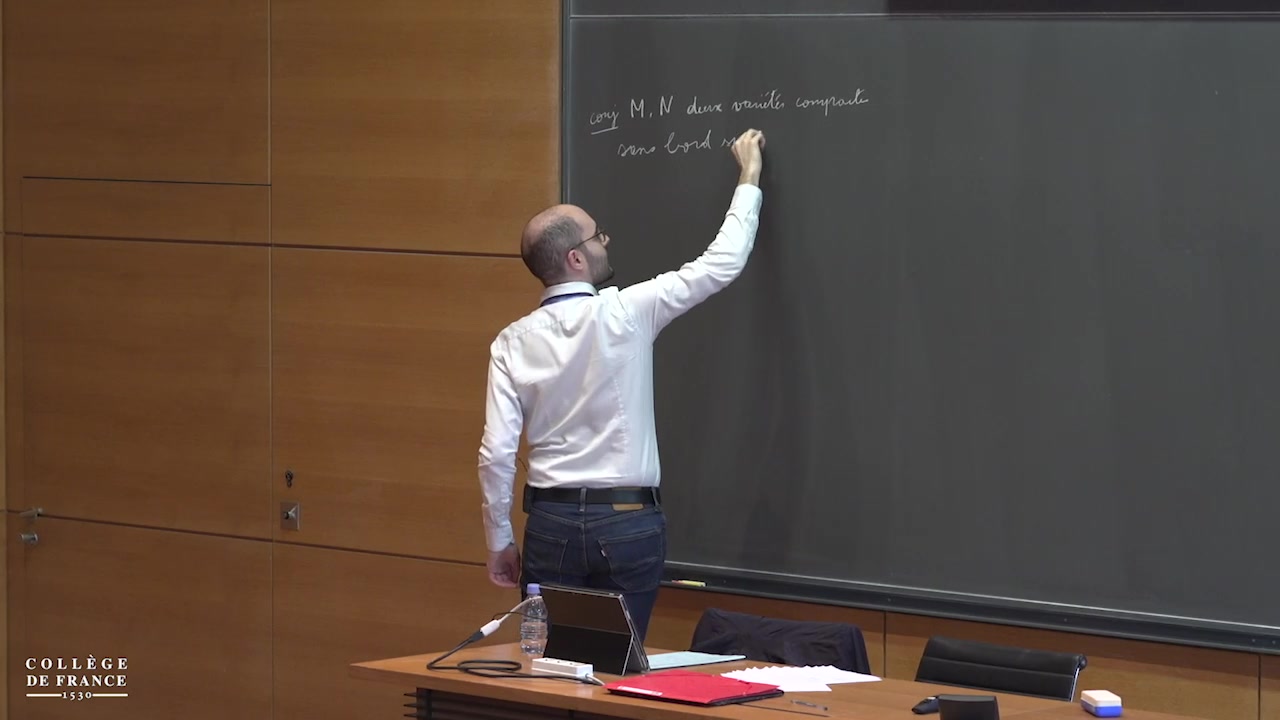 conj M, N deux variétés compactes
sans bord
COLLÈGE
DE FRANCE
1530